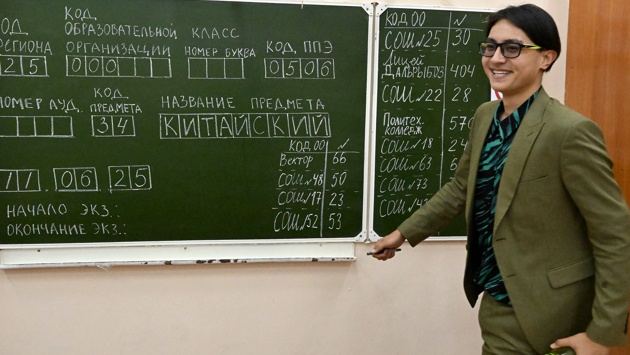 КОД
КОД ОБРАЗОВАТЕЛЬНОЙ КЛАСС
РЕГИОНА ОРГАНИЗАЦИИ НОМЕР БУКВА КОД ППЭ
25 0000 0506
НОМЕР АУД. КОД ПРЕДМЕТА НАЗВАНИЕ ПРЕДМЕТА
34 КИТАЙСКИЙ
11 06 25
НАЧАЛО ЭКЗ.:
ОКОНЧАНИЕ ЭКЗ.:
КОД ОО №
Вектор 66
СОШ №48 50
СОШ №17 23
СОШ №52 53
КОД ОО №
СОШ №25 30
Лицей
404
СОШ №22 28
Политех.
колледж 57
СОШ №18 24
СОШ №63
СОШ №73